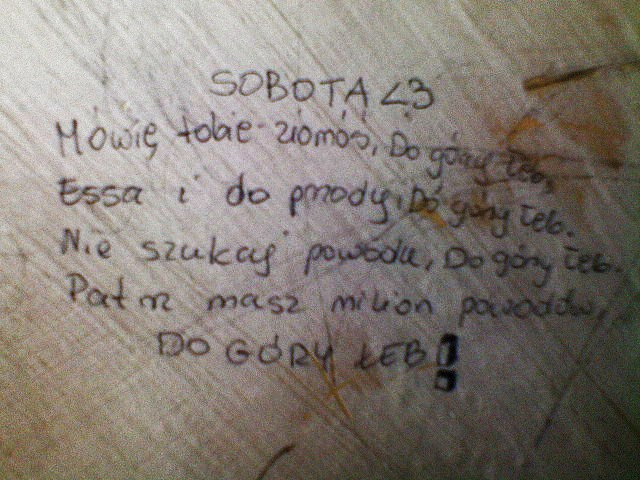 SOBOTA <3
Mówię tobie - ziomóś, Do góry łeb,
Essa i do przody, Do góry łeb.
Nie szukaj powodu, Do góry łeb.
Patrz masz milion powodów,
DO GÓRY ŁEB!